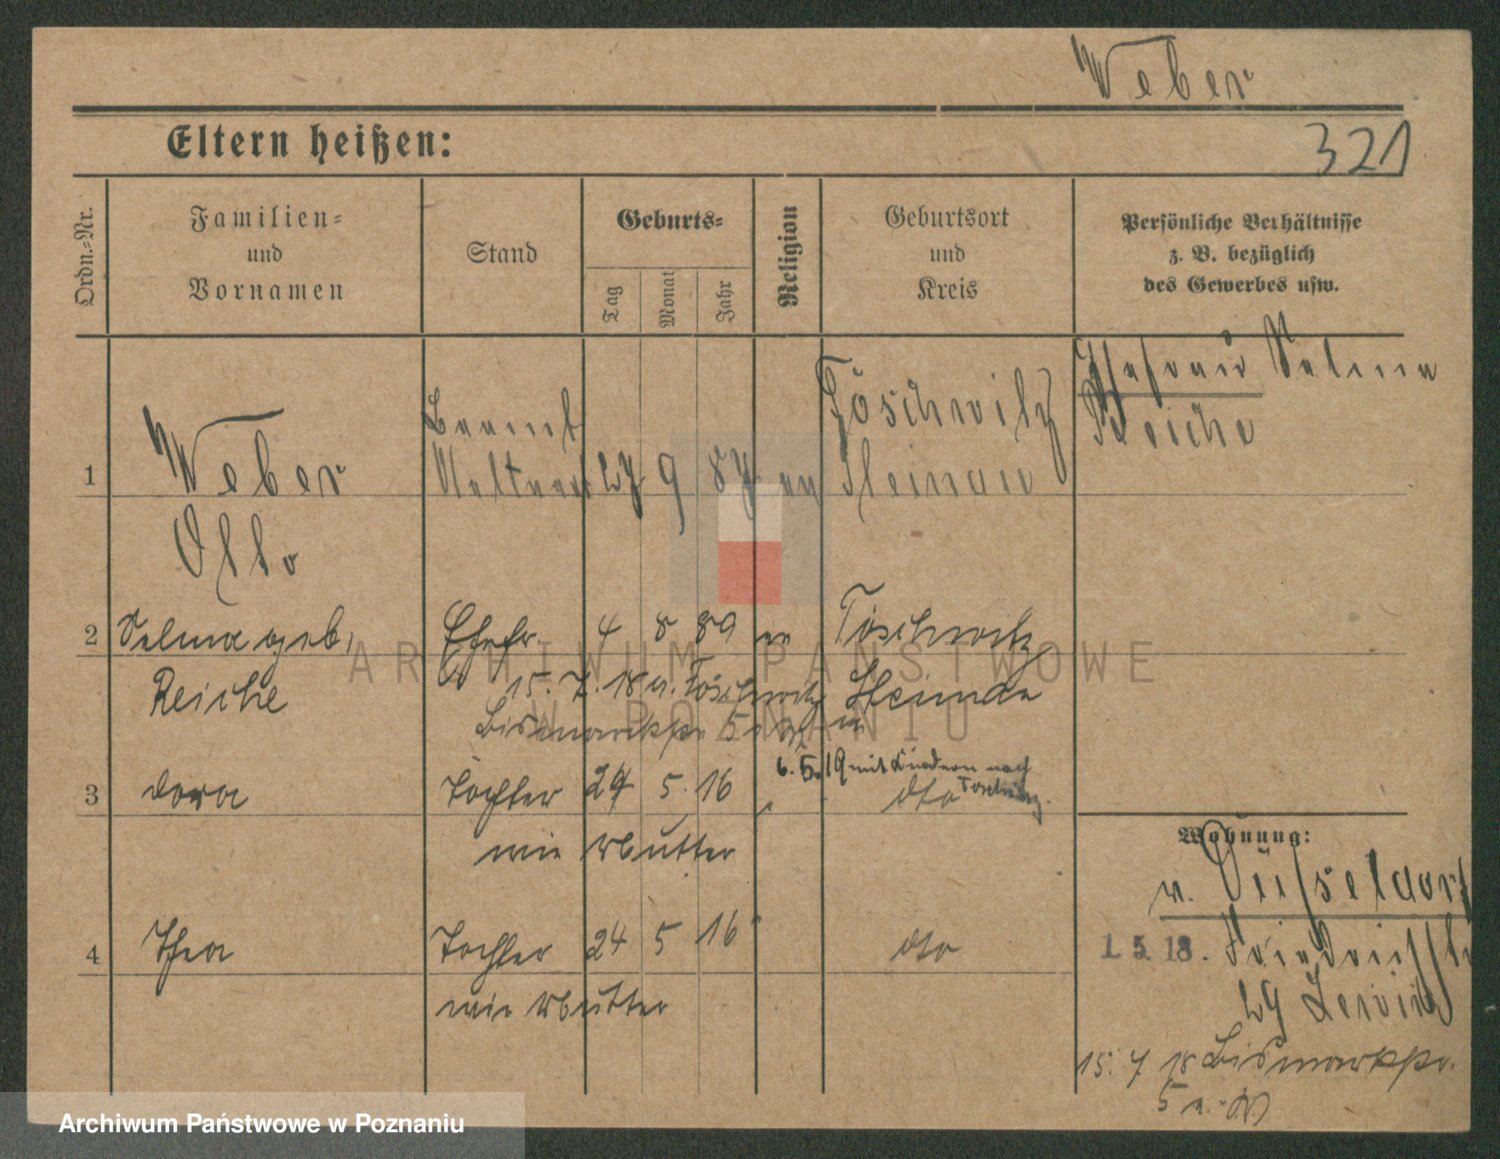 Weber
Eltern heißen:
321
Ordn.-Nr.
Familien-
und
Vornamen
Stand
Geburts-
Tag
Monat
Jahr
Religion
Geburtsort
und
Kreis
Persönliche Verhältnisse
z. B. bezüglich
des Gewerbes usw.
1
Weber
Otto
27 9 87
Töschwitz
Steinau
Ehefrau Selma
Reiche
2
Selma geb.
Reiche
Ehefr.
4 8 89
Töschwitz
Steinau
15. 7. 18 v. Töschwitz
Bismarckstr. 5
6. 5. 19 mit Kindern nach
Töschwitz
3
Dora
Tochter
24 5. 16
dto
wie Mutter
4
Thea
Tochter
24 5 16
dto
wie Mutter
Wohnung:
v. Düsseldorf
1. 5. 18.
29
15. 7 18 Bismarckstr.
5
ARCHIWUM PAŃSTWOWE
W POZNANIU
Archiwum Państwowe w Poznaniu